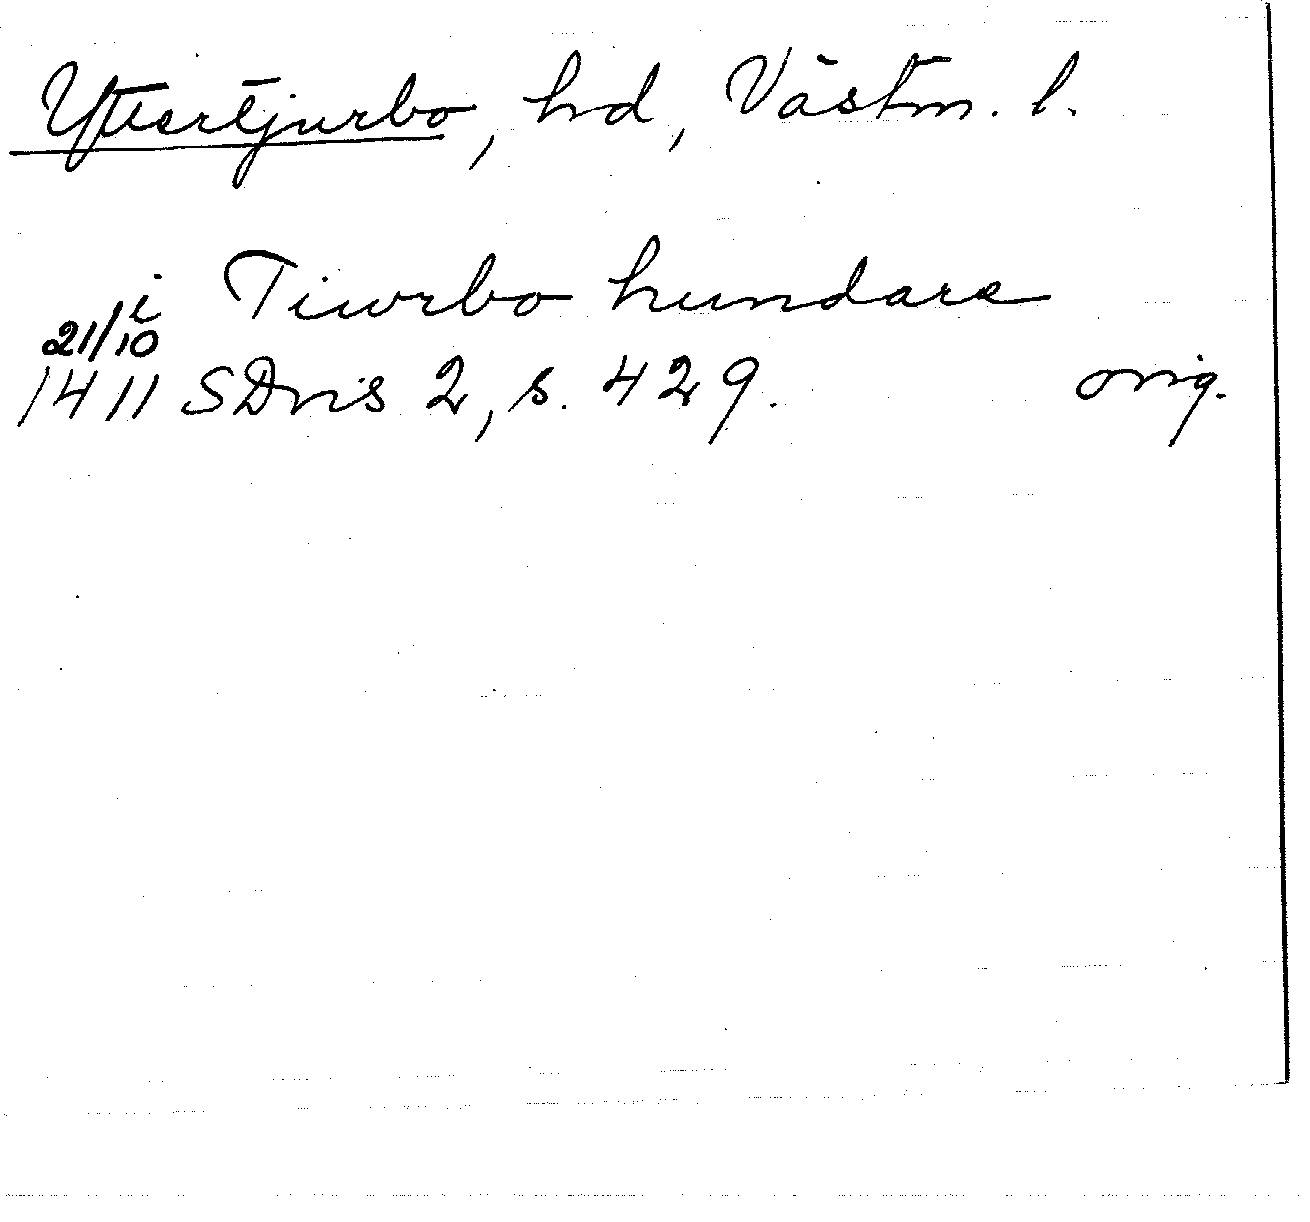 Yttertjurbo, hd, Västm. l.
i Tiwrbo hundare
21/10
1411 SDns 2, s. 429. orig.